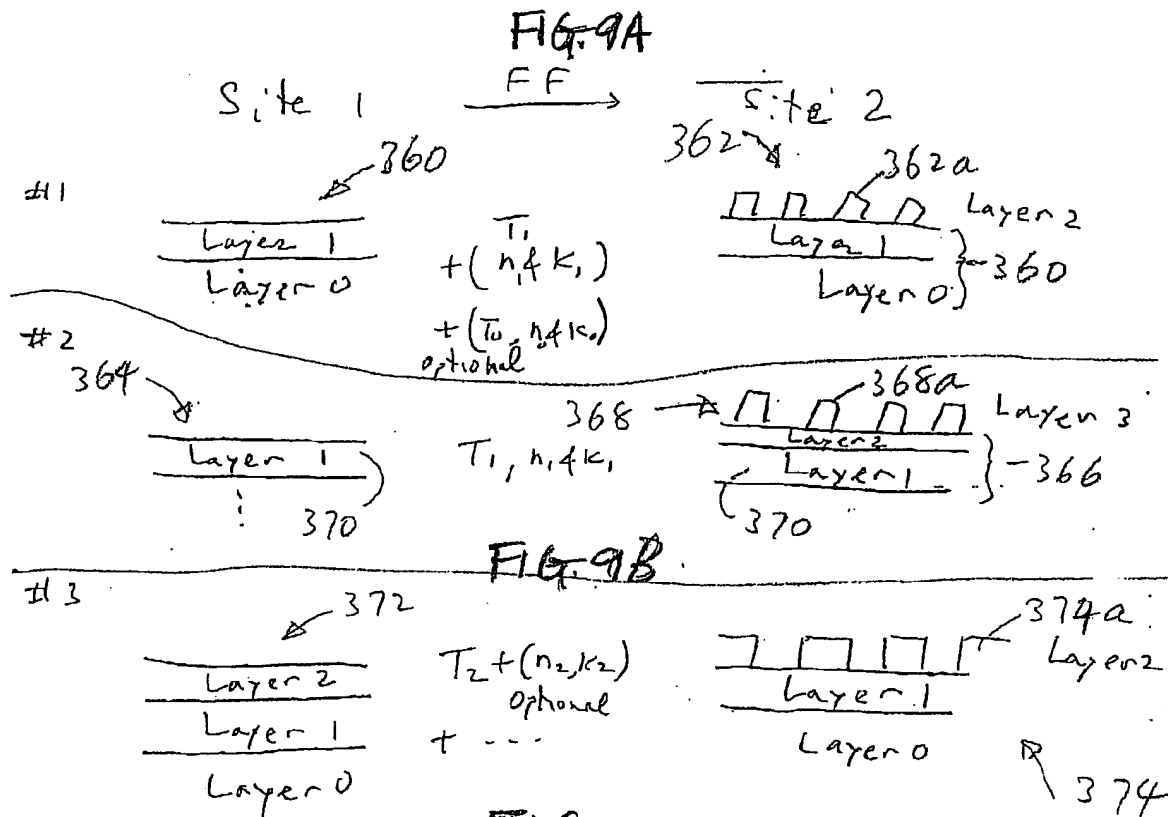 FIG. 9A
Site 1 FF Site 2
#1
360
362
362a
Layer 1
Layer 0
T₁
+ (n₁ & k₁)
+ (T₀, n₀ & k₀)
optional
Layer 2
Layer 1
Layer 0
360
#2
364
Layer 1
370
T₁, n₁ & k₁
368
368a
Layer 3
Layer 2
Layer 1
366
370
FIG. 9B
#3
372
Layer 2
Layer 1
Layer 0
T₂ + (n₂, k₂)
optional
+ ----
374a
Layer 2
Layer 1
Layer 0
374